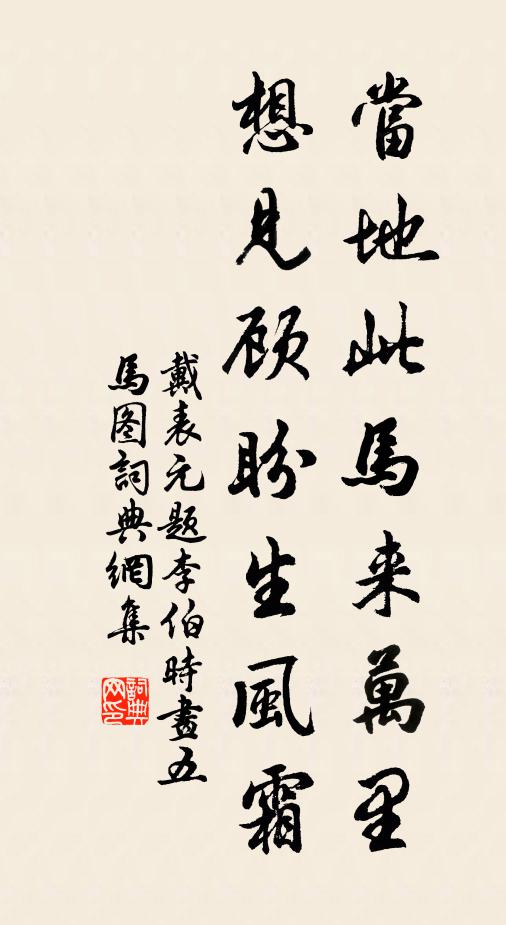 當地此馬来萬里
想見顾盼生風霜
戴表元题李伯時畫五
馬图詞典網集
詞典
网印